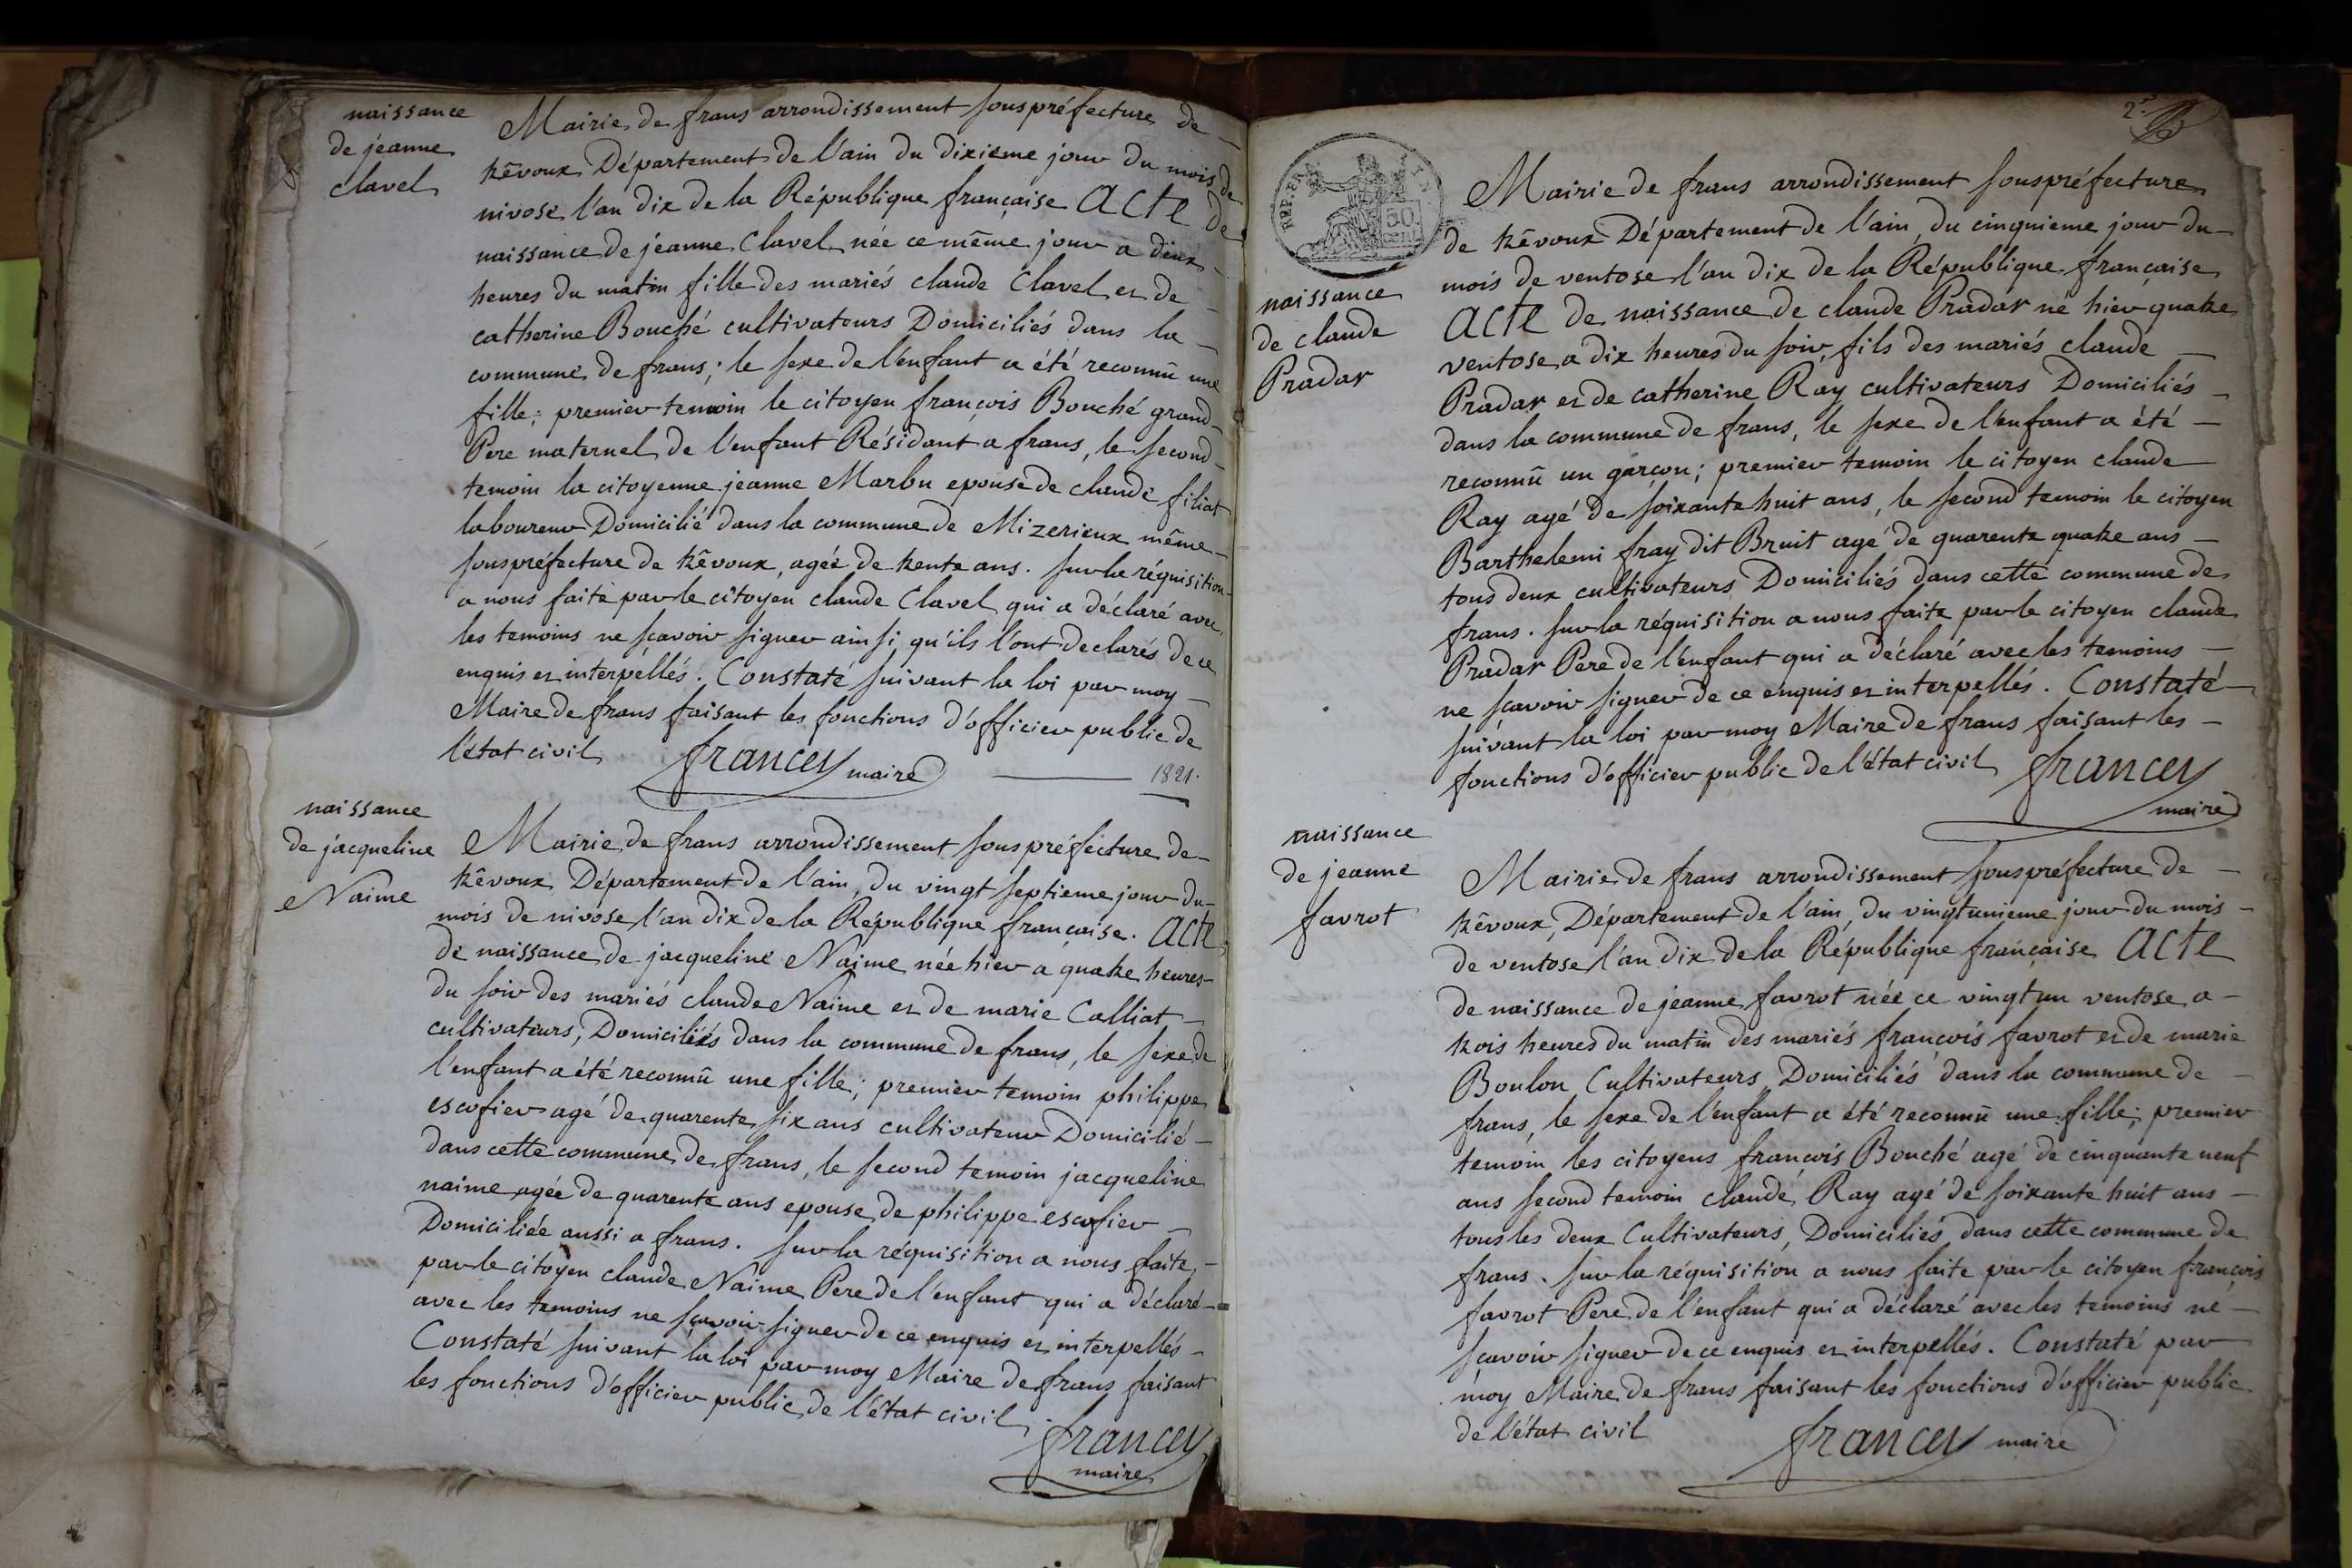 naissance
de jeanne
clavel
Mairie de frans arrondissement souspréfecture de
trêvoux Département de l'ain du dixieme jour du mois de
nivose l'an dix de la République française Acte de
naissance de jeanne Clavel née ce même jour a deux
heures du matin fille des mariés claude Clavel et de
catherine Bouché cultivateurs Domiciliés dans la
commune de frans; le sexe de l'enfant a été reconnû une
fille; premier temoin le citoyen françois Bouché grand
Pere maternel de l'enfant Résidant a frans, le second
temoin la citoyenne jeanne Marbu epouse de claude filiat
laboureur Domicilié dans la commune de Mizerieux même
souspréfecture de trêvoux, agée de trente ans. sur la réquisition
a nous faite par le citoyen claude Clavel qui a déclaré avec
les temoins ne sçavoir signer ainsi qu'ils l'ont declarés de ce
enquis et interpellés. Constaté suivant la loi par moy
Maire de frans faisant les fonctions d'officier public de
l'état civil francey maire 1821.
naissance
de jacqueline
Naime
Mairie de frans arrondissement souspréfecture de
trêvoux Département de l'ain, du vingt septieme jour du
mois de nivose l'an dix de la République française. Acte
de naissance de jacqueline Naime née hier a quatre heures
du soir des mariés claude Naime et de marie Calliat
cultivateurs, Domiciliés dans la commune de frans, le sexe de
l'enfant a été reconnû une fille; premier temoin philippe
escofier agé de quarente six ans cultivateur Domicilié
dans cette commune de frans, le second temoin jacqueline
naime agée de quarente ans epouse de philippe escofier
Domiciliée aussi a frans. sur la réquisition a nous faite
par le citoyen claude Naime Pere de l'enfant qui a déclaré
avec les temoins ne sçavoir signer de ce enquis et interpellés
Constaté suivant la loi par moy Maire de frans faisant
les fonctions d'officier public de l'état civil.
francey
maire
2e
REP. FRA.
50
CENT.
naissance
de claude
Pradar
Mairie de frans arrondissement souspréfecture
de trêvoux Département de l'ain, du cinquieme jour du
mois de ventose l'an dix de la République française
Acte de naissance de claude Pradar né hier quatre
ventose a dix heures du soir, fils des mariés claude
Pradar et de catherine Ray cultivateurs Domiciliés
dans la commune de frans, le sexe de l'enfant a été
reconnû un garçon; premier temoin le citoyen claude
Ray agé de soixante huit ans, le second temoin le citoyen
Barthelemi fray dit Bruit agé de quarente quatre ans
tous deux cultivateurs Domiciliés dans cette commune de
frans. sur la réquisition a nous faite par le citoyen claude
Pradar Pere de l'enfant qui a déclaré avec les temoins
ne sçavoir signer de ce enquis et interpellés. Constaté
suivant la loi par moy Maire de frans faisant les
fonctions d'officier public de l'état civil francey
maire
naissance
de jeanne
favrot
Mairie de frans arrondissement souspréfecture de
trêvoux, Département de l'ain, du vingtunieme jour du mois
de ventose l'an dix de la République française Acte
de naissance de jeanne favrot née ce vingt un ventose a
trois heures du matin des mariés françois favrot et de marie
Boulon Cultivateurs Domiciliés dans la commune de
frans, le sexe de l'enfant a été reconnû une fille; premier
temoin les citoyens françois Bouché agé de cinquante neuf
ans second temoin claude Ray agé de soixante huit ans
tous les deux Cultivateurs, Domiciliés dans cette commune de
frans. sur la réquisition a nous faite par le citoyen françois
favrot Pere de l'enfant qui a déclaré avec les temoins ne
sçavoir signer de ce enquis et interpellés. Constaté par
moy Maire de frans faisant les fonctions d'officier public
de l'état civil francey maire